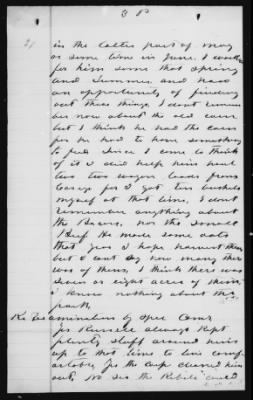 in the latter part of may
or some time in June. I worked
for him some that Spring
and Summer and had
an opportunity of finding
out these things. I dont remem
ber now about the old corn
but I think he had the corn
for he had to have something
to feed Since I come to think
of it I did help him haul
two two wagon loads from
Caseys for I got ten bushels
myself at that time. I dont
remember anything about
the Beans, nor the Small
Beef He made some oats
that year I hope harvest them
but I cant say now many there
was of them, I think there was
seven or eight acres of them.
I know nothing about the
Re Examination by Spec Comr
Jos Russell always Kept
plenty stuff around him
up to that time to live comf
ortable, for the army cleaned him
out, No Sir the Rebels